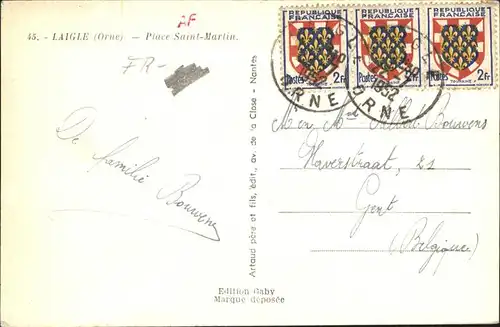 AF
45. - LAIGLE (Orne) - Place Saint-Martin.
FR-
REPUBLIQUE FRANÇAISE REPUBLIQUE FRANÇAISE REPUBLIQUE FRANÇAISE
Postes 2Fr Postes 2Fr Postes 2Fr
TOURAINE TOURAINE TOURAINE
1952
ORNE ORNE
De familie
Bouwens
Bouwens
Haverstraat, 21
Gent
(Belgique)
Artaud père et fils, édit., av. de la Close - Nantes
Edition Gaby
Marque déposée